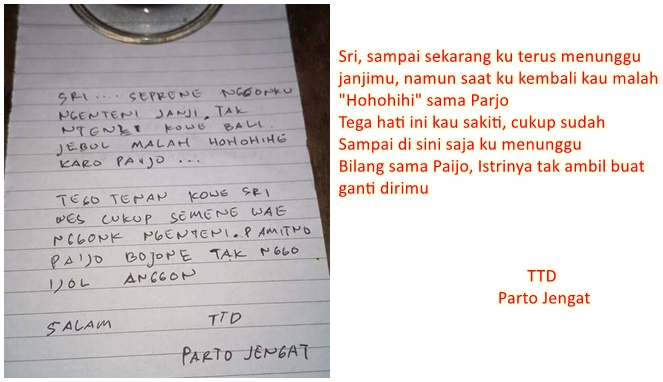 SRI .... SEPRENE NGGONKU
NGENTENI JANJI. TAK
NTENI KOWE BALI
JEBUL MALAH HOHOHIHE
KARO PAIJO ...
TEGO TENAN KOWE SRI
WES CUKUP SEMENE WAE
NGGONK NGENTENI. PAMITNO
PAIJO BOJONE TAK NGGO
IJOL ANGGON
SALAM TTD
PARTO JENGAT
Sri, sampai sekarang ku terus menunggu
janjimu, namun saat ku kembali kau malah
"Hohohihi" sama Parjo
Tega hati ini kau sakiti, cukup sudah
Sampai di sini saja ku menunggu
Bilang sama Paijo, Istrinya tak ambil buat
ganti dirimu
TTD
Parto Jengat